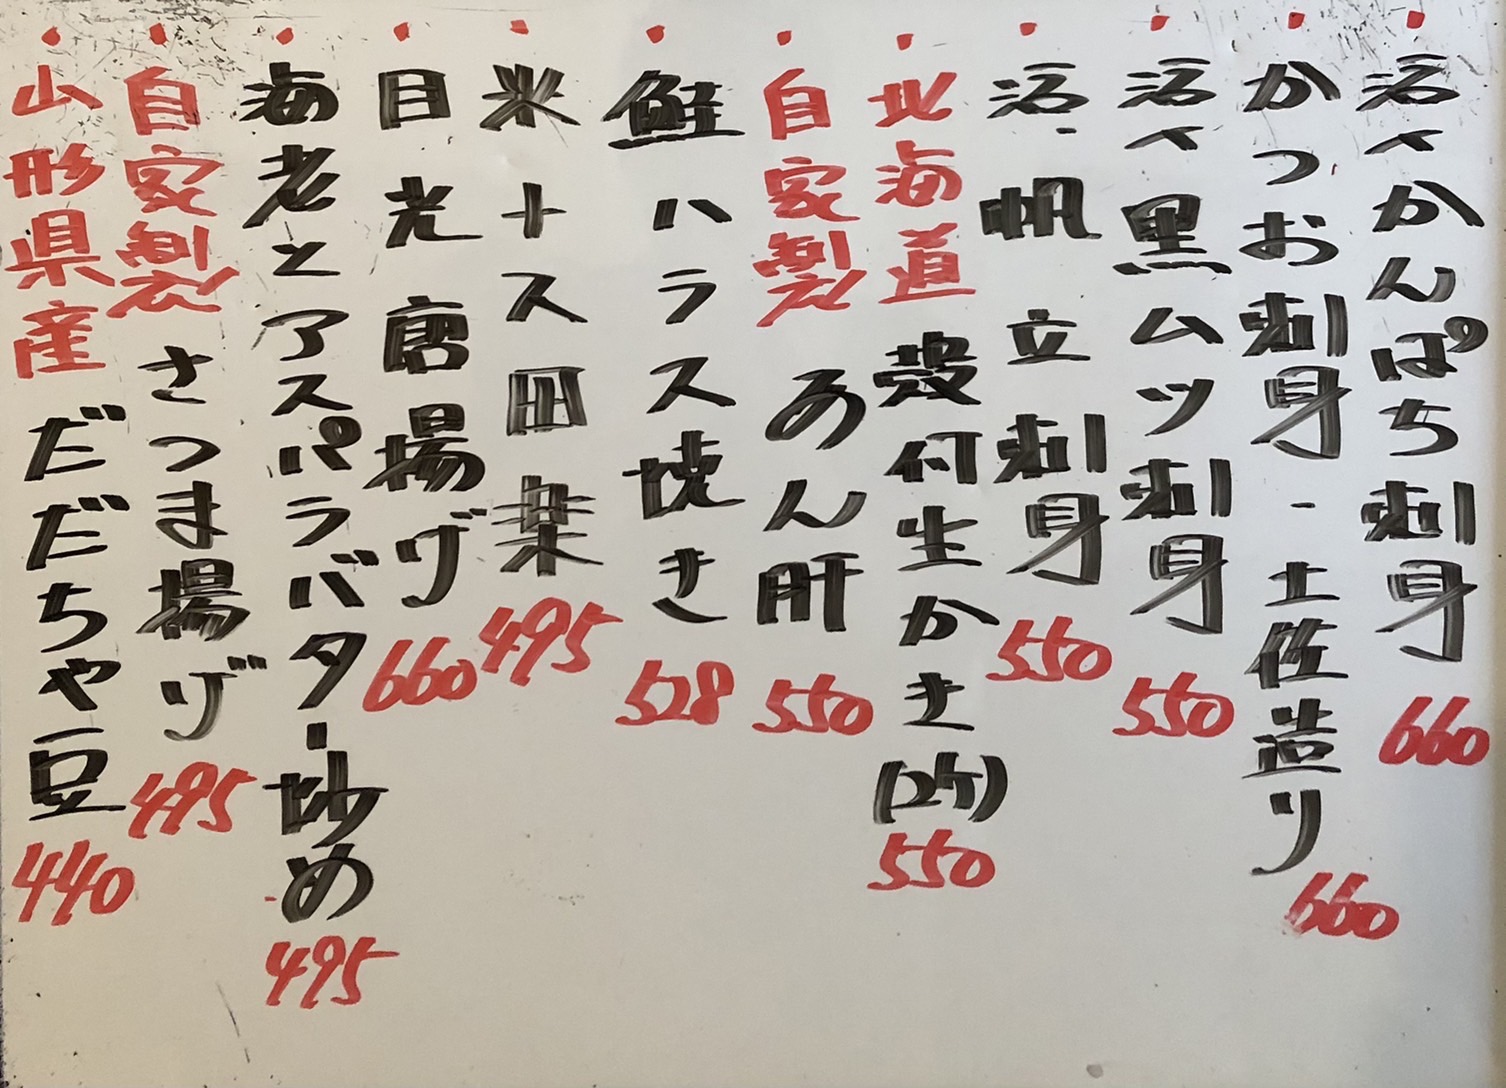 ・活〆かんぱち刺身 660
・かつお刺身・土佐造り 660
・活〆黒ムツ刺身 550
・活・帆立刺身 550
・北海道 殻付生かき(2ケ) 550
・自家製 あん肝 550
・鮭ハラス焼き 528
・米トス田楽 495
・目光唐揚げ 660
・海老とアスパラバター炒め 495
・自家製 さつま揚げ 495
・山形県産 だだちゃ豆 440